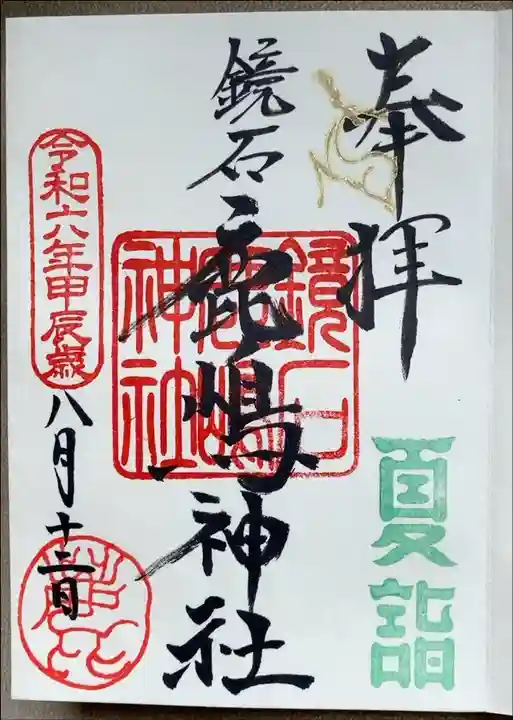 奉拝
夏詣
鏡石鹿嶋神社
鏡石鹿嶋神社
令和六年甲辰歳
八月十三日